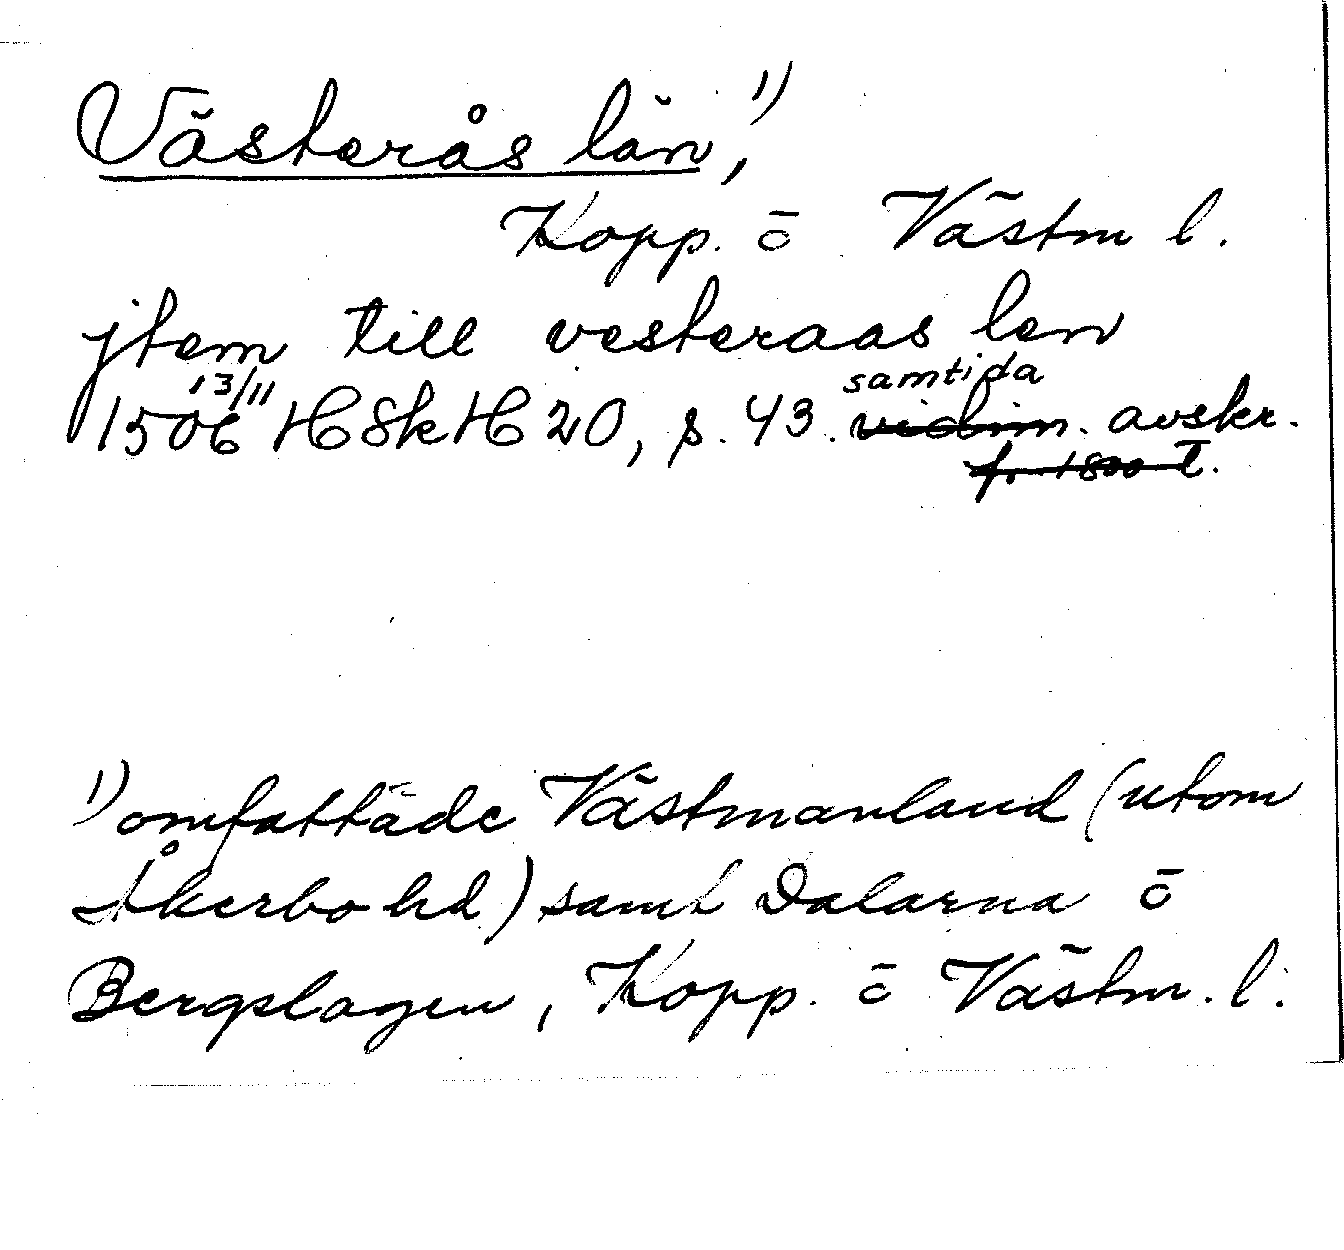 Västerås län, 1)
Kopp. o Västm l.
jtem till vesteraas len
samtida
1506 13/11 HSkH 20, s. 43. vidim. avskr.
fr. 1800 t.
1) omfattade Västmanland (utom
Åkerbo hd) samt Dalarna o
Bergslagen, Kopp. o Västm. l.